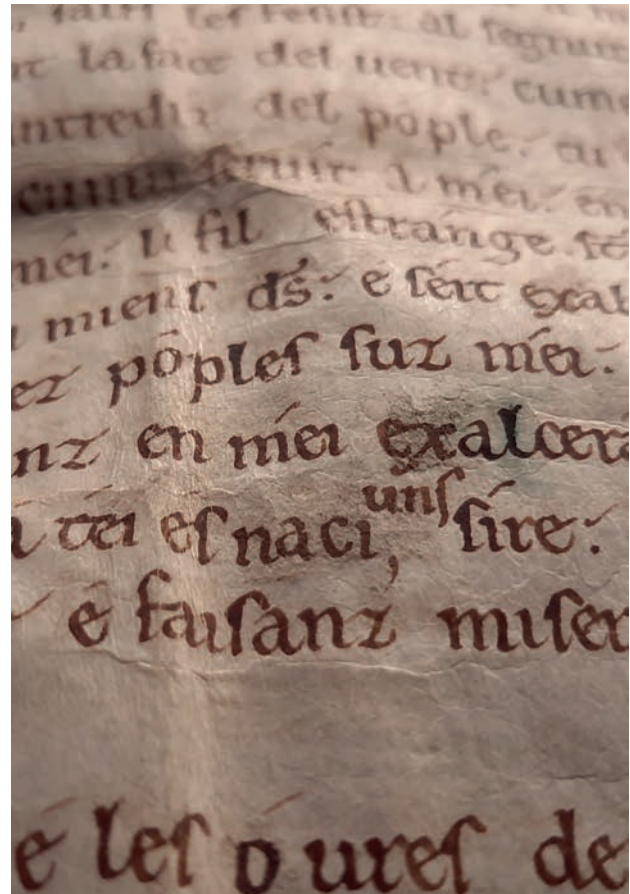 la face del uent: cume
del pople: tu
seruit a mei: en
mei: li fil estrange
miens ds: e seit exal
ez poples suz mei:
nz en mei exalcera
a tei es naciuns sire:
e faisanz miser
e les oures de